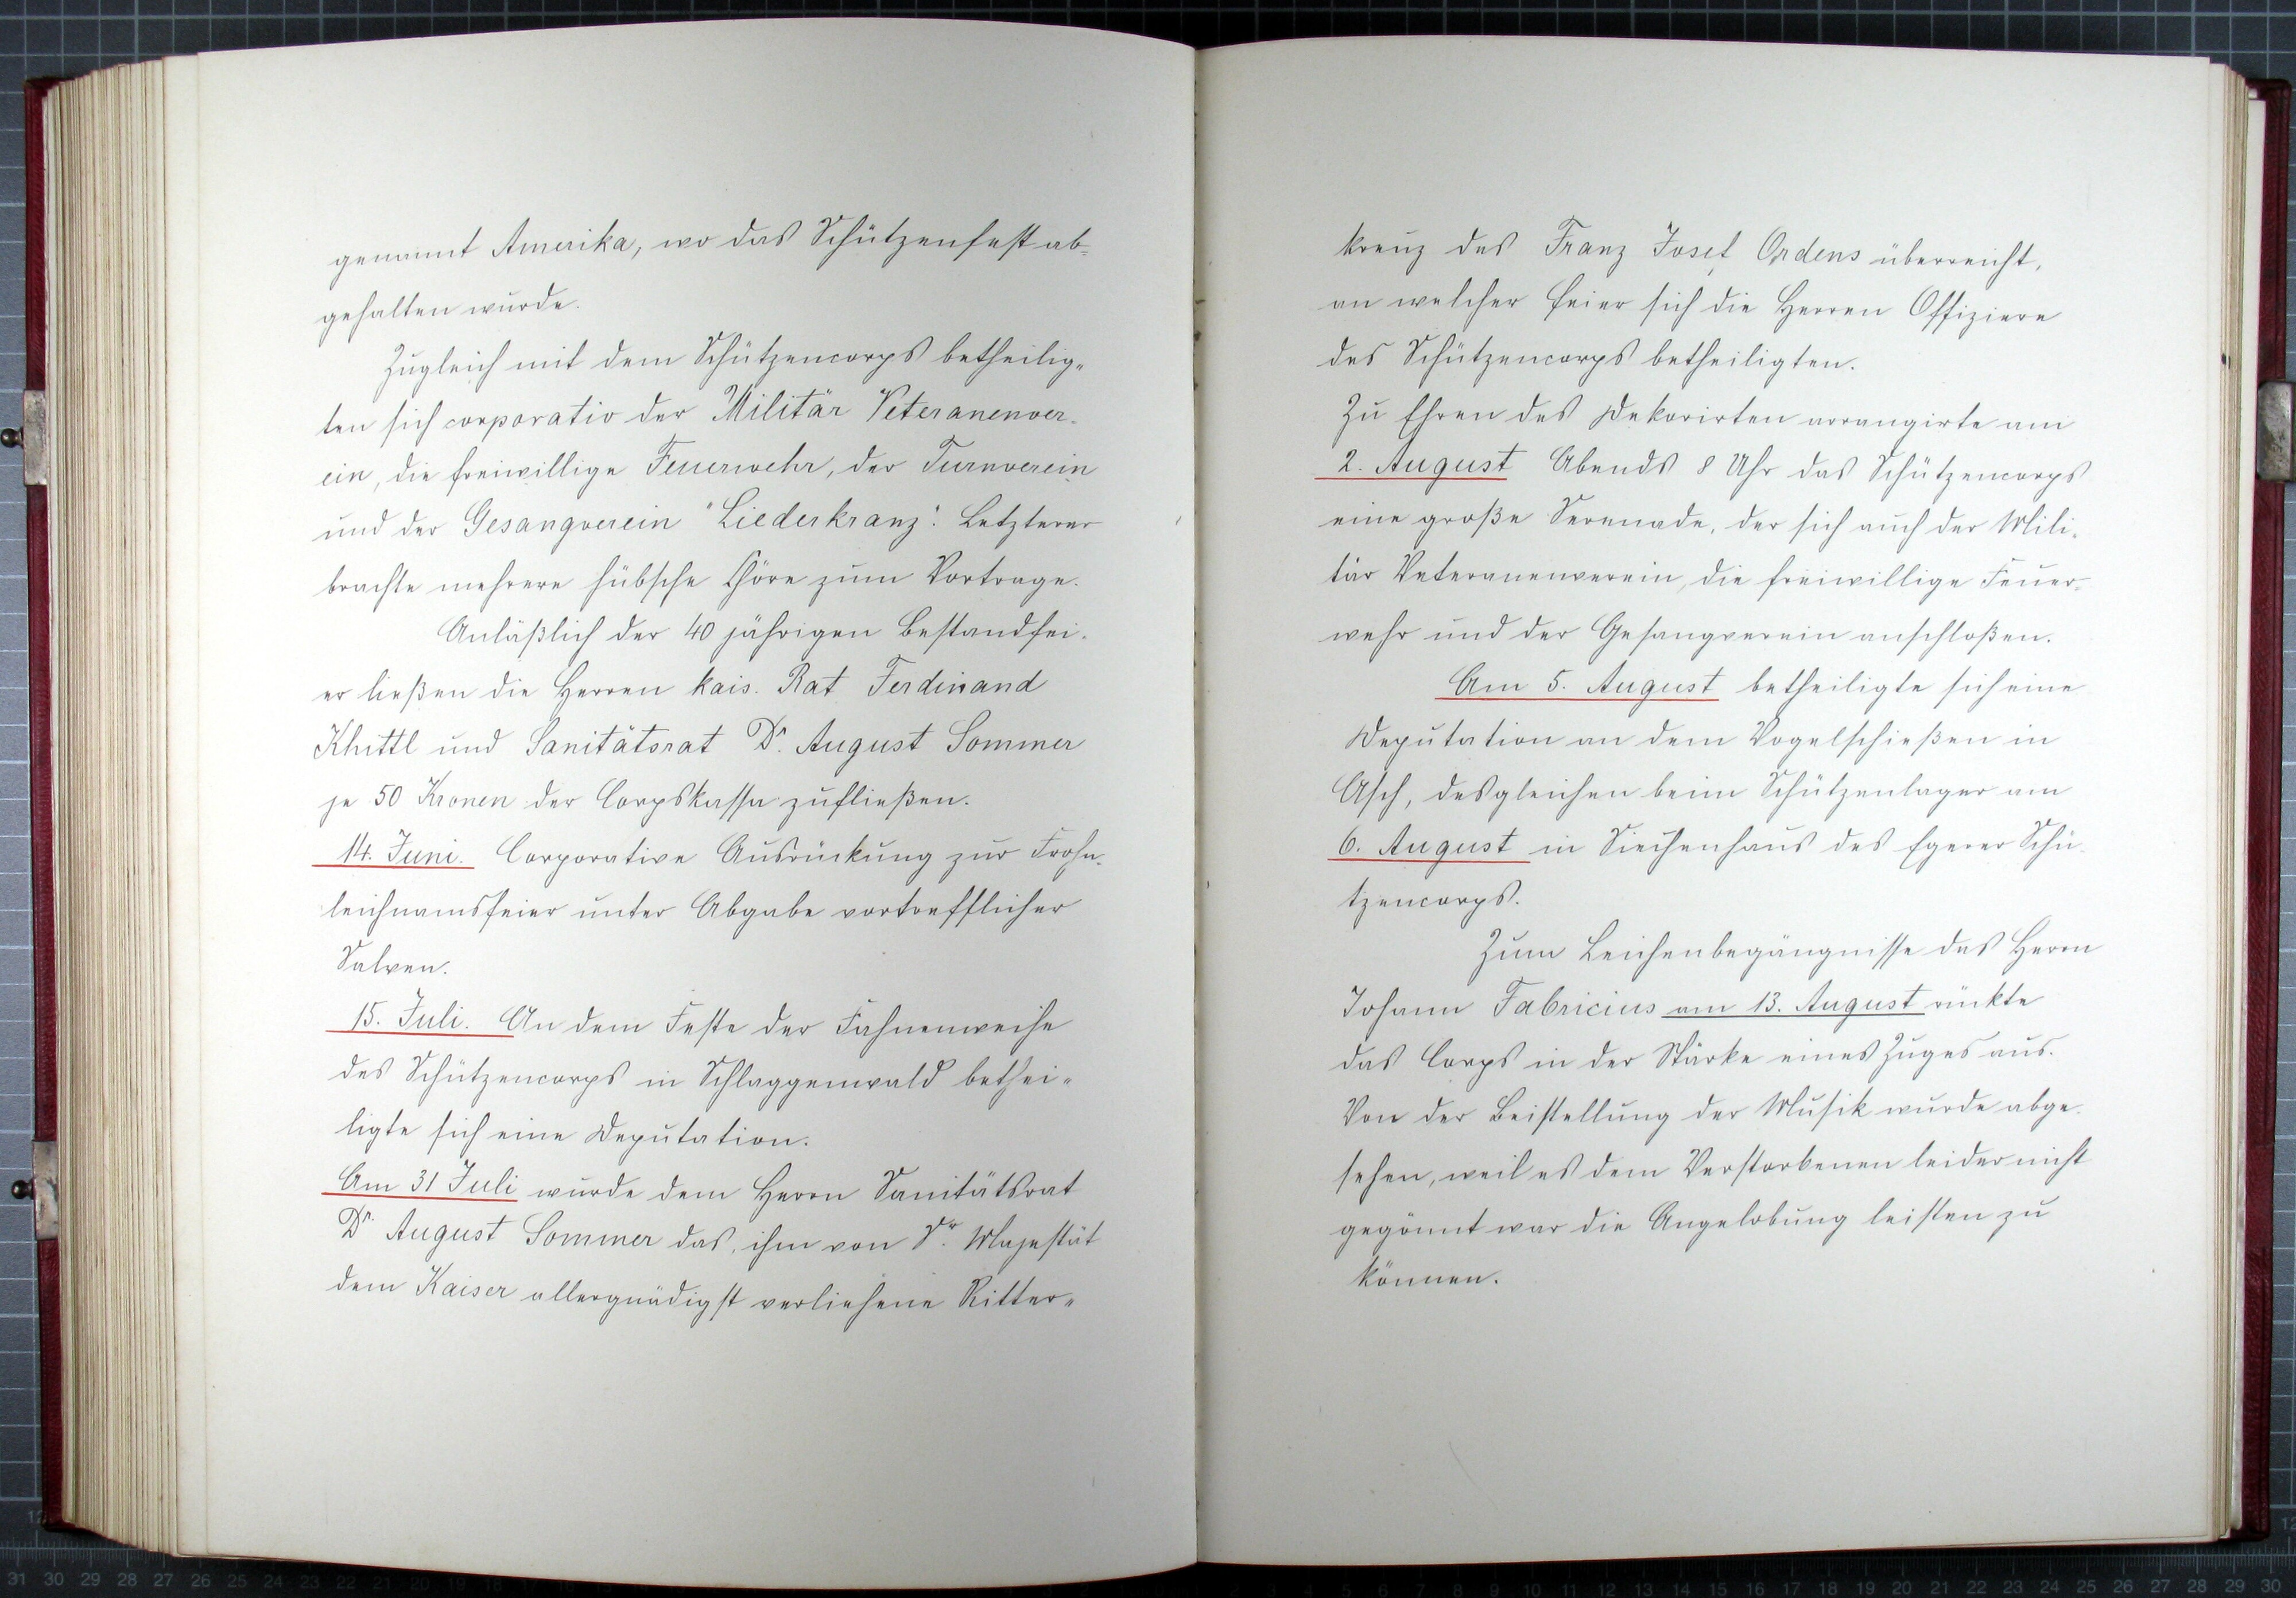 genannt Amerika, wo das Schützenfest ab=
gehalten wurde.
Zugleich mit dem Schützencorps betheilig„
ten sich corporativ der Militär Veteranenver-
ein, die freiwillige Feuerwehr, der Turnverein
und der Gesangverein "Liederkranz". Letzterer
brachte mehrere hübsche Chöre zum Vortrage.
Anläßlich der 40 jährigen Bestandfei-
er ließen die Herren kais. Rat Ferdinand
Khittl und Sanitätsrat Dr. August Sommer
je 50 Kronen der Corpskassa zufließen.
14. Juni. Corporative Ausrückung zur Frohn-
leichnamsfeier unter Abgabe vortrefflicher
Salven.
15. Juli. An dem Feste der Fahnenweihe
des Schützencorps in Schlaggenwald bethei„
ligte sich eine Deputation.
Am 31 Juli wurde dem Herrn Sanitätsrat
Dr. August Sommer das, ihm von Sr. Majestät
dem Kaiser allergnädigst verliehene Ritter„
kreuz des Franz Josef Ordens überreicht,
an welcher Feier sich die Herren Offiziere
des Schützencorps betheiligten.
Zu Ehren des Dekorirten arrangirte am
2. August Abends 8 Uhr das Schützencorps
eine große Serenade, der sich auch der Mili-
tär Veteranenverein, die freiwillige Feuer-
wehr und der Gesangverein anschloßen.
Am 5. August betheiligte sich eine
Deputation an dem Vogelschießen in
Asch, desgleichen beim Schützenlager am
6. August in Siechenhaus des Egerer Schü-
tzencorps.
Zum Leichenbegängnisse des Herrn
Johann Fabricius am 13. August rückte
das Corps in der Stärke eines Zuges aus.
Von der Beistellung der Musik wurde abge-
sehen, weil es dem Verstorbenen leider nicht
gegönnt war die Angelobung leisten zu
können.